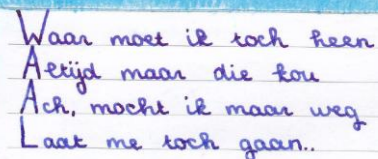 Waar moet ik toch heen
Altijd maar die kou
Ach, mocht ik maar weg
Laat me toch gaan..